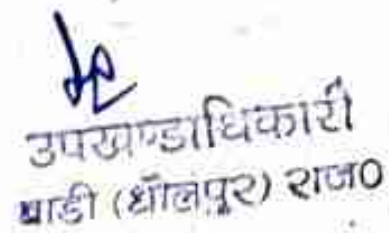 उपखण्डाधिकारी
बाडी (धौलपुर) राज०